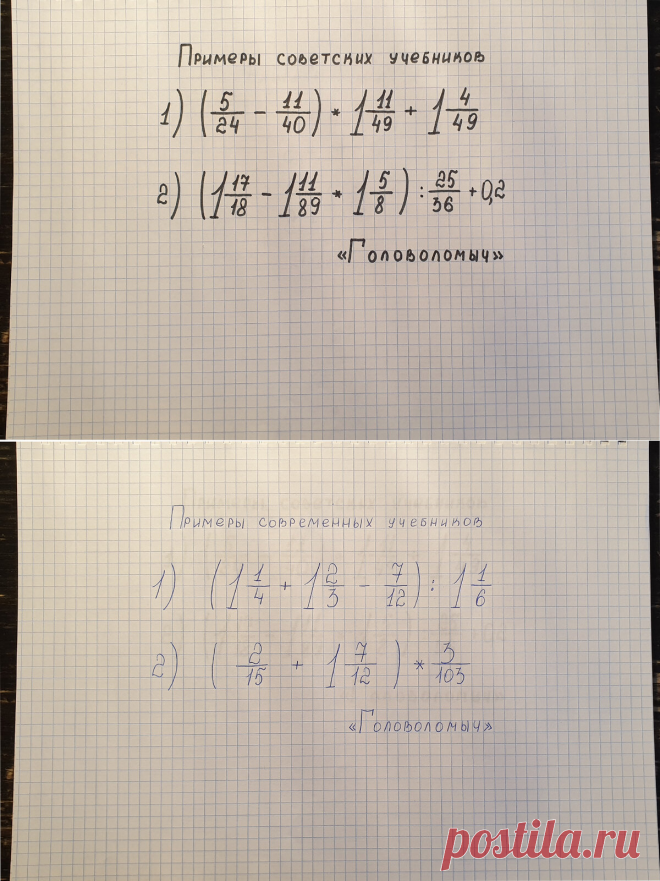 Примеры советских учебников
1) (5/24 - 11/40) * 1 11/49 + 1 4/49
2) (1 17/18 - 1 11/89 * 1 5/8) : 25/36 + 0,2
«Головоломыч»
Примеры современных учебников
1) (1 1/4 + 1 2/3 - 7/12) : 1 1/6
2) (2/15 + 1 7/12) * 3/103
«Головоломыч»
postila.ru